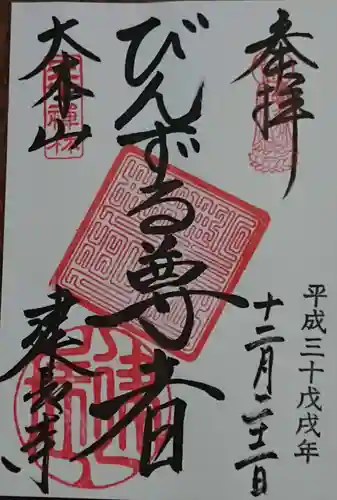 奉拝
平成三十戊戌年
十二月二十二日
びんずる尊者
大本山
建長寺